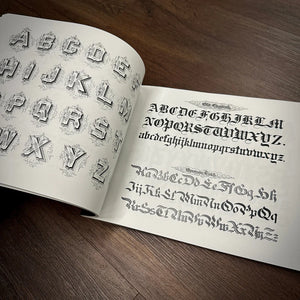 A B C D E
H I J K L
O P Q R
W X Y Z
Old English.
ABCDEFGHIJKLM
NOPQRSTUVWXYZ.
abcdefghijklmnopqrstuvwxyz.
Aa Bb Cc Dd Ee Ff Gg Hh
Ii Jj Kk Ll Mm Nn Oo Pp Qq
Rr Ss Tt Uu Vv Ww Xx Yy Zz